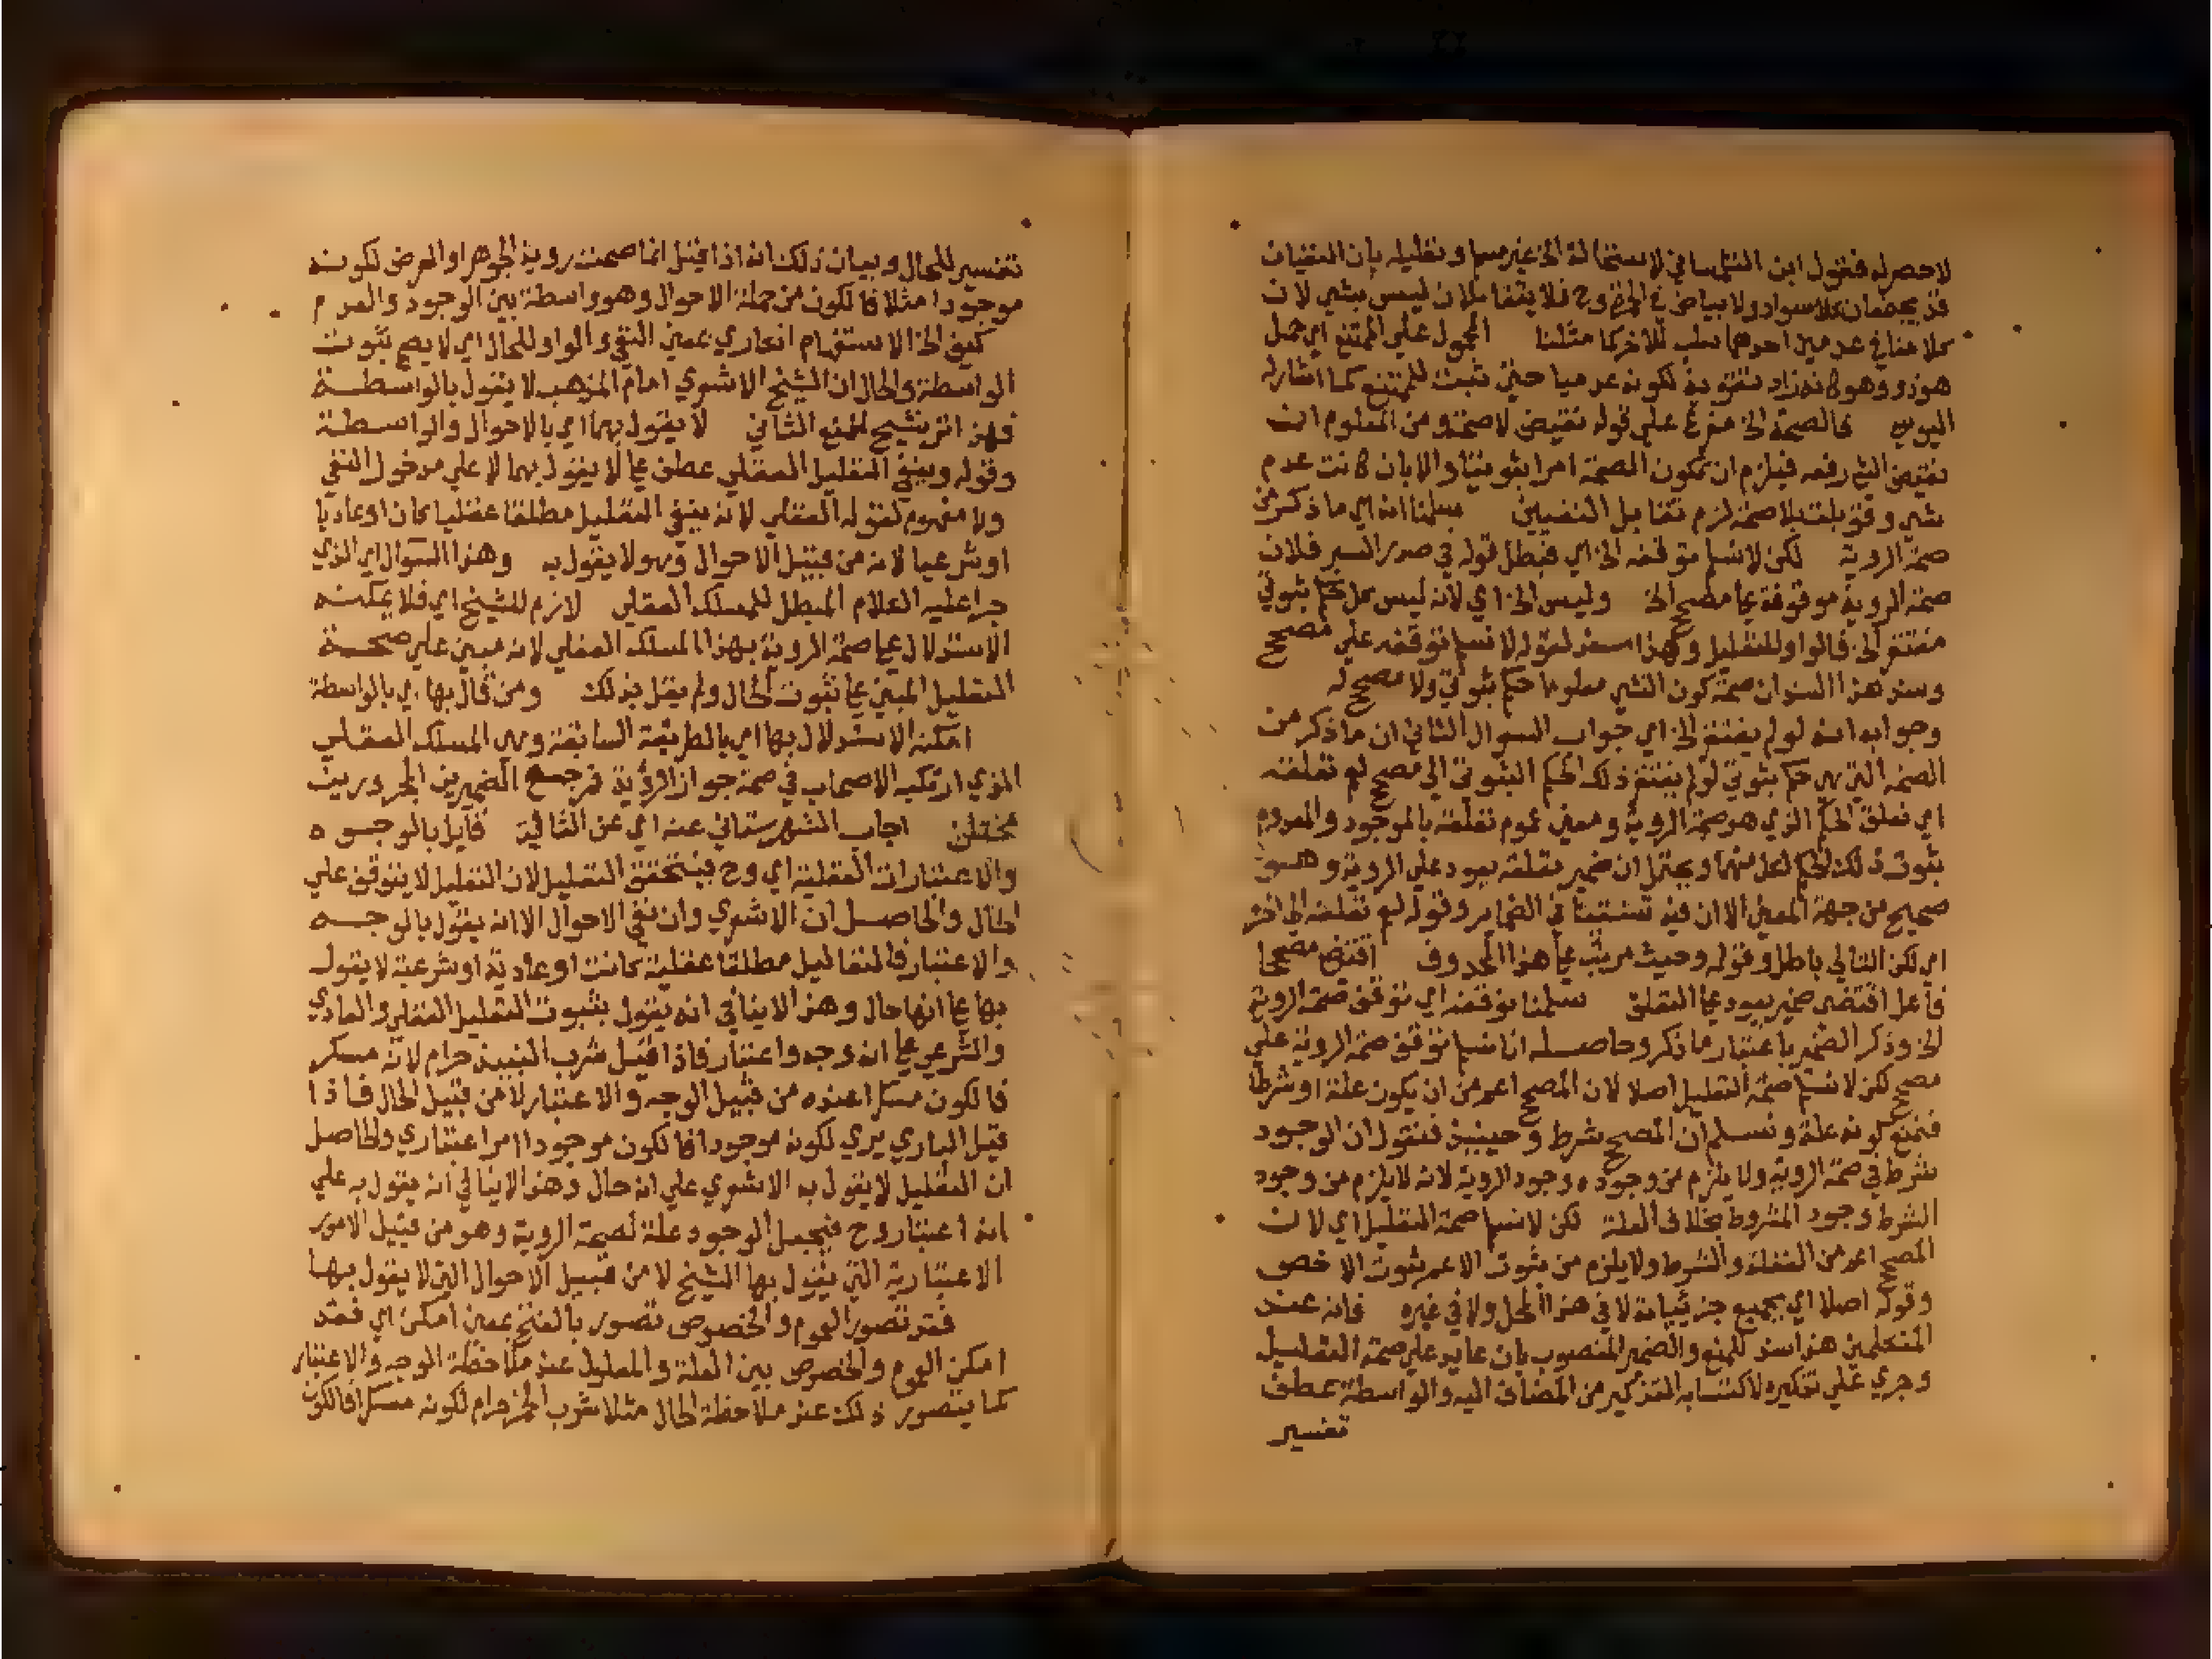 لا حصر له فقول ابن التلمساني لا استحالة الخ غير مسلم وتعليله بان النقيضان
قد يجتمعان كلا سواد ولا بياض في الحمرة وح فلا يتقابلان ليس بشي لان
كلا منافي عدمين احدهما سلب للاخر كما مثلنا المحمول علي الممتنع اي حمل
هوذو وهو كانه زاد تقوية لكونه عدميا حيث تثبت للممتنع كما اشار له
اليوسي كالصحة الخ مفرع علي قوله نقيض لا صحة ومن المعلوم ان
نقيض الشي رفعه فيلزم ان تكون الصحة امرا ثبوتيا والا بان كانت عدم
شي وقوبلت بلا صحة لزم تقابل النفيين سلمنا انه اي ما ذكر من
صحة الروية لكن لا نسلم توقفه الخ اي فبطل قوله في صدر السبر فلان
صحة الروية موقوفة علي مصحح الخ وليس الخ اي لانه ليس كل حكم ثبوتي
مفتقر الخ فالواو للتعليل وهذا سند لقوله لا نسلم توقفه علي مصحح
وسند هذا السند ان صحة كون الشي معلوما حكم ثبوتي ولا مصحح له
وجوابه انه لو لم يفتقر الخ اي جواب السوال الثاني ان ما ذكر من
الصحة التي هي حكم ثبوتي لو لم يفتقر ذلك الحكم الثبوتي الي مصحح لعم تعلقه
اي تعلق الحكم الذي هو صحة الروية ومعني عموم تعلقه بالموجود والمعدوم
ثبوت ذلك الحكم لكل منهما ويحتمل ان ضمير تعلقه يعود علي الروية وهو
صحيح من جهة المعني الا ان فيه تشتيتا في الضماير وقوله لعم تعلقه الي اخره
اي لكن التالي باطل وقوله وحيث مرتب علي هذا المحذوف اقتضي مصححا
فاعل اقتضي ضمير يعود علي التعلق سلمنا توقفه اي توقف صحة الروية
الخ وذكر الضمير باعتبار ما ذكر وحاصله انا نسلم توقف صحة الروية علي
مصحح لكن لا نسلم صحة التعليل اصلا لان المصحح اعم من ان يكون علة او شرطا
فنمنع كونه علة ونسلم ان المصحح شرط وحينيذ فنقول ان الوجود
شرط في صحة الروية ولا يلزم من وجوده وجود الروية لانه لا يلزم من وجود
الشرط وجود المشروط بخلاف العلة لكن لا نسلم صحة التعليل اي لان
المصحح اعم من العلة والشرط ولا يلزم من ثبوت الاعم ثبوت الاخص
وقوله اصلا اي بجميع جزئياته لا في هذا المحل ولا في غيره فانه عند
المتكلمين هذا سند للمنع والضمير المنصوب بان عايد علي صحة التعليل
وجري علي تذكيره لاكتسابه التذكير من المضاف اليه والواسطة عطف
تفسير
تفسير للحال وبيان ذلك انه اذا قيل انما صحت روية الجوهر او العرض لكونه
موجودا مثلا فالكون من جملة الاحوال وهو واسطة بين الوجود والعدم
كيف الخ الاستفهام انكاري بمعني النفي والواو للحال اي لا يصح ثبوت
الواسطة والحال ان الشيخ الاشعري امام المذهب لا يقول بالواسطة
فهذا ترشيح للمنع الثاني لا يقول بهما اي بالاحوال والواسطة
وقوله وينفي التعليل العقلي عطف علي لا يقول بهما لا علي مدخول النفي
ولا مفهوم لقوله العقلي لانه ينفي التعليل مطلقا عقليا كان او عاديا
او شرعيا لانه من قبيل الاحوال وهو لا يقول به وهذا السوال اي الذي
جرا عليه الكلام المبطل للمسلك العقلي لازم للشيخ اي فلا يمكنه
الاستدلال علي صحة الروية بهذا المسلك العقلي لانه مبني علي صحة
التعليل المبني علي ثبوت الحال ولم يقل بذلك ومن قال بها اي بالواسطة
امكنه الاستدلال بها اي بالطريقة السابقة وهي المسلك العقلي
الذي ارتكبه الاصحاب في صحة جواز الروية فمرجع الضميرين المجرورين
مختلف اجاب الشهرستاني عنه اي عن الثالث قايلا بالوجوه
والاعتبارات العقلية اي وح فيتحقق التعليل لان التعليل لا يتوقف علي
الحال والحاصل ان الاشعري وان نفي الاحوال الا انه يقول بالوجه
والاعتبار فالتعاليل مطلقا عقلية كانت او عادية او شرعية لا يقول
بها علي انها حال وهذا لا ينافي انه يقول بثبوت التعليل العقلي والعادي
والشرعي علي انه وجه واعتبار فاذا قيل شرب النبيذ حرام لانه مسكر
فالكون مسكرا عنده من قبيل الوجه والاعتبار لا من قبيل الحال فاذا
قيل الباري يري لكونه موجودا فالكون موجودا امر اعتباري والحاصل
ان التعليل لا يقول به الاشعري علي انه حال وهذا لا ينافي انه يقول به علي
انه اعتبار وح فيجعل الوجود علة لصحة الروية وهو من قبيل الامور
الاعتبارية التي يقول بها الشيخ لا من قبيل الاحوال التي لا يقول بها
فقد تصور العموم والخصوص تصور بالفتح بمعني امكن اي فقد
امكن العموم والخصوص بين العلة والمعلول عند ملاحظة الوجه والاعتبار
كما يتصور ذلك عند ملاحظة الحال مثلا شرب الخمر حرام لكونه مسكرا فالكون